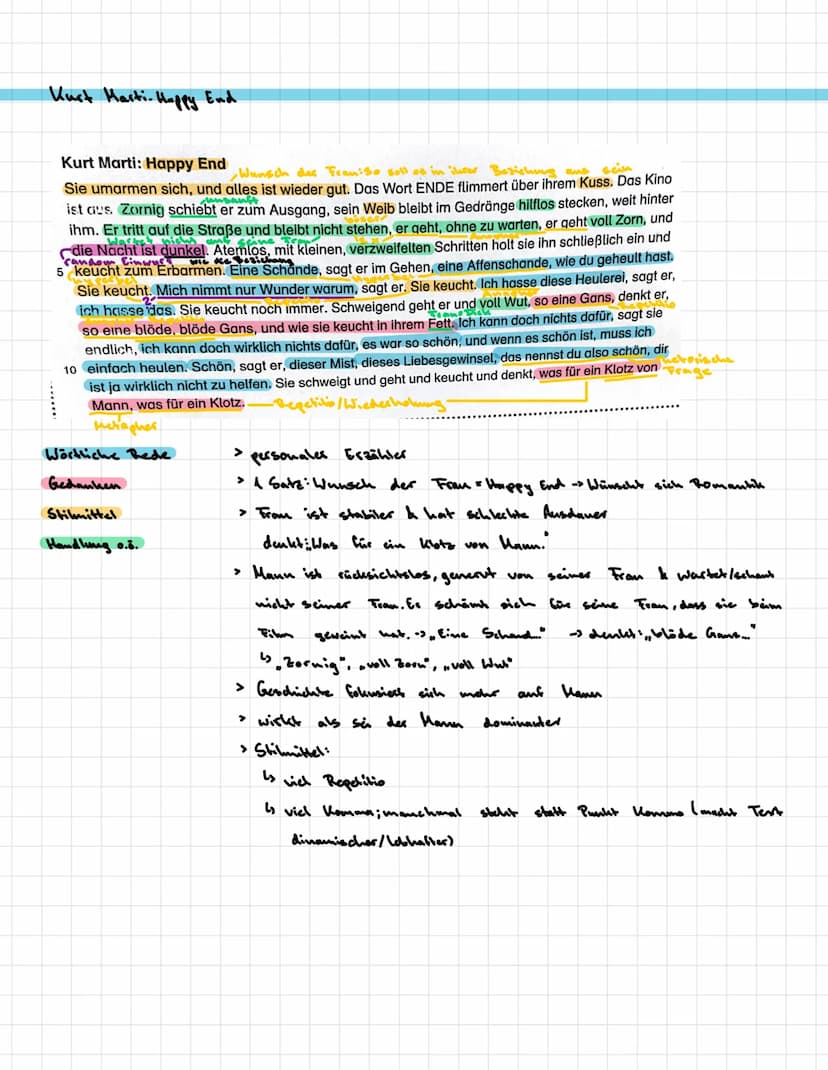 Kurt Marti - Happy End
Kurt Marti: Happy End
Wunsch der Frau: So soll es in ihrer Beziehung aus sein
Sie umarmen sich, und alles ist wieder gut. Das Wort ENDE flimmert über ihrem Kuss. Das Kino
unsanft
ist aus. Zornig schiebt er zum Ausgang, sein Weib bleibt im Gedränge hilflos stecken, weit hinter
ihm. Er tritt auf die Straße und bleibt nicht stehen, er geht, ohne zu warten, er geht voll Zorn, und
wartet nicht auf seine Frau
die Nacht ist dunkel. Atemlos, mit kleinen, verzweifelten Schritten holt sie ihn schließlich ein und
random Einwurf wie die Beziehung
5 keucht zum Erbarmen. Eine Schande, sagt er im Gehen, eine Affenschande, wie du geheult hast.
Sie keucht. Mich nimmt nur Wunder warum, sagt er. Sie keucht. Ich hasse diese Heulerei, sagt er,
ich hasse das. Sie keucht noch immer. Schweigend geht er und voll Wut, so eine Gans, denkt er,
Repetitio
so eine blöde, blöde Gans, und wie sie keucht in ihrem Fett. Ich kann doch nichts dafür, sagt sie
endlich, ich kann doch wirklich nichts dafür, es war so schön, und wenn es schön ist, muss ich
10 einfach heulen. Schön, sagt er, dieser Mist, dieses Liebesgewinsel, das nennst du also schön, dir
rhetorische Frage
ist ja wirklich nicht zu helfen. Sie schweigt und geht und keucht und denkt, was für ein Klotz von
Mann, was für ein Klotz. Repetitio/Wiederholung
Metapher
Wörtliche Rede
Gedanken
Stilmittel
Handlung o.ä.
> personaler Erzähler
> 1 Satz: Wunsch der Frau = Happy End -> Wünscht sich Romantik
> Frau ist stabiler & hat schlechte Ausdauer
denkt: „Was für ein Klotz von Mann."
> Mann ist rücksichtslos, genervt von seiner Frau & wartet/schaut
nicht seiner Frau. Er schämt sich für seine Frau, dass sie beim
Film geweint hat. -> „Eine Schand." -> denkt: „blöde Gans..."
↳ „Zornig", „voll Zorn", „voll Wut"
> Geschichte fokusiert sich mehr auf Mann
> wirkt als sei der Mann dominanter
> Stilmittel:
↳ viel Repetitio
↳ viel Komma; manchmal steht statt Punkt Komma (macht Text
dinamischer/lebhafter)